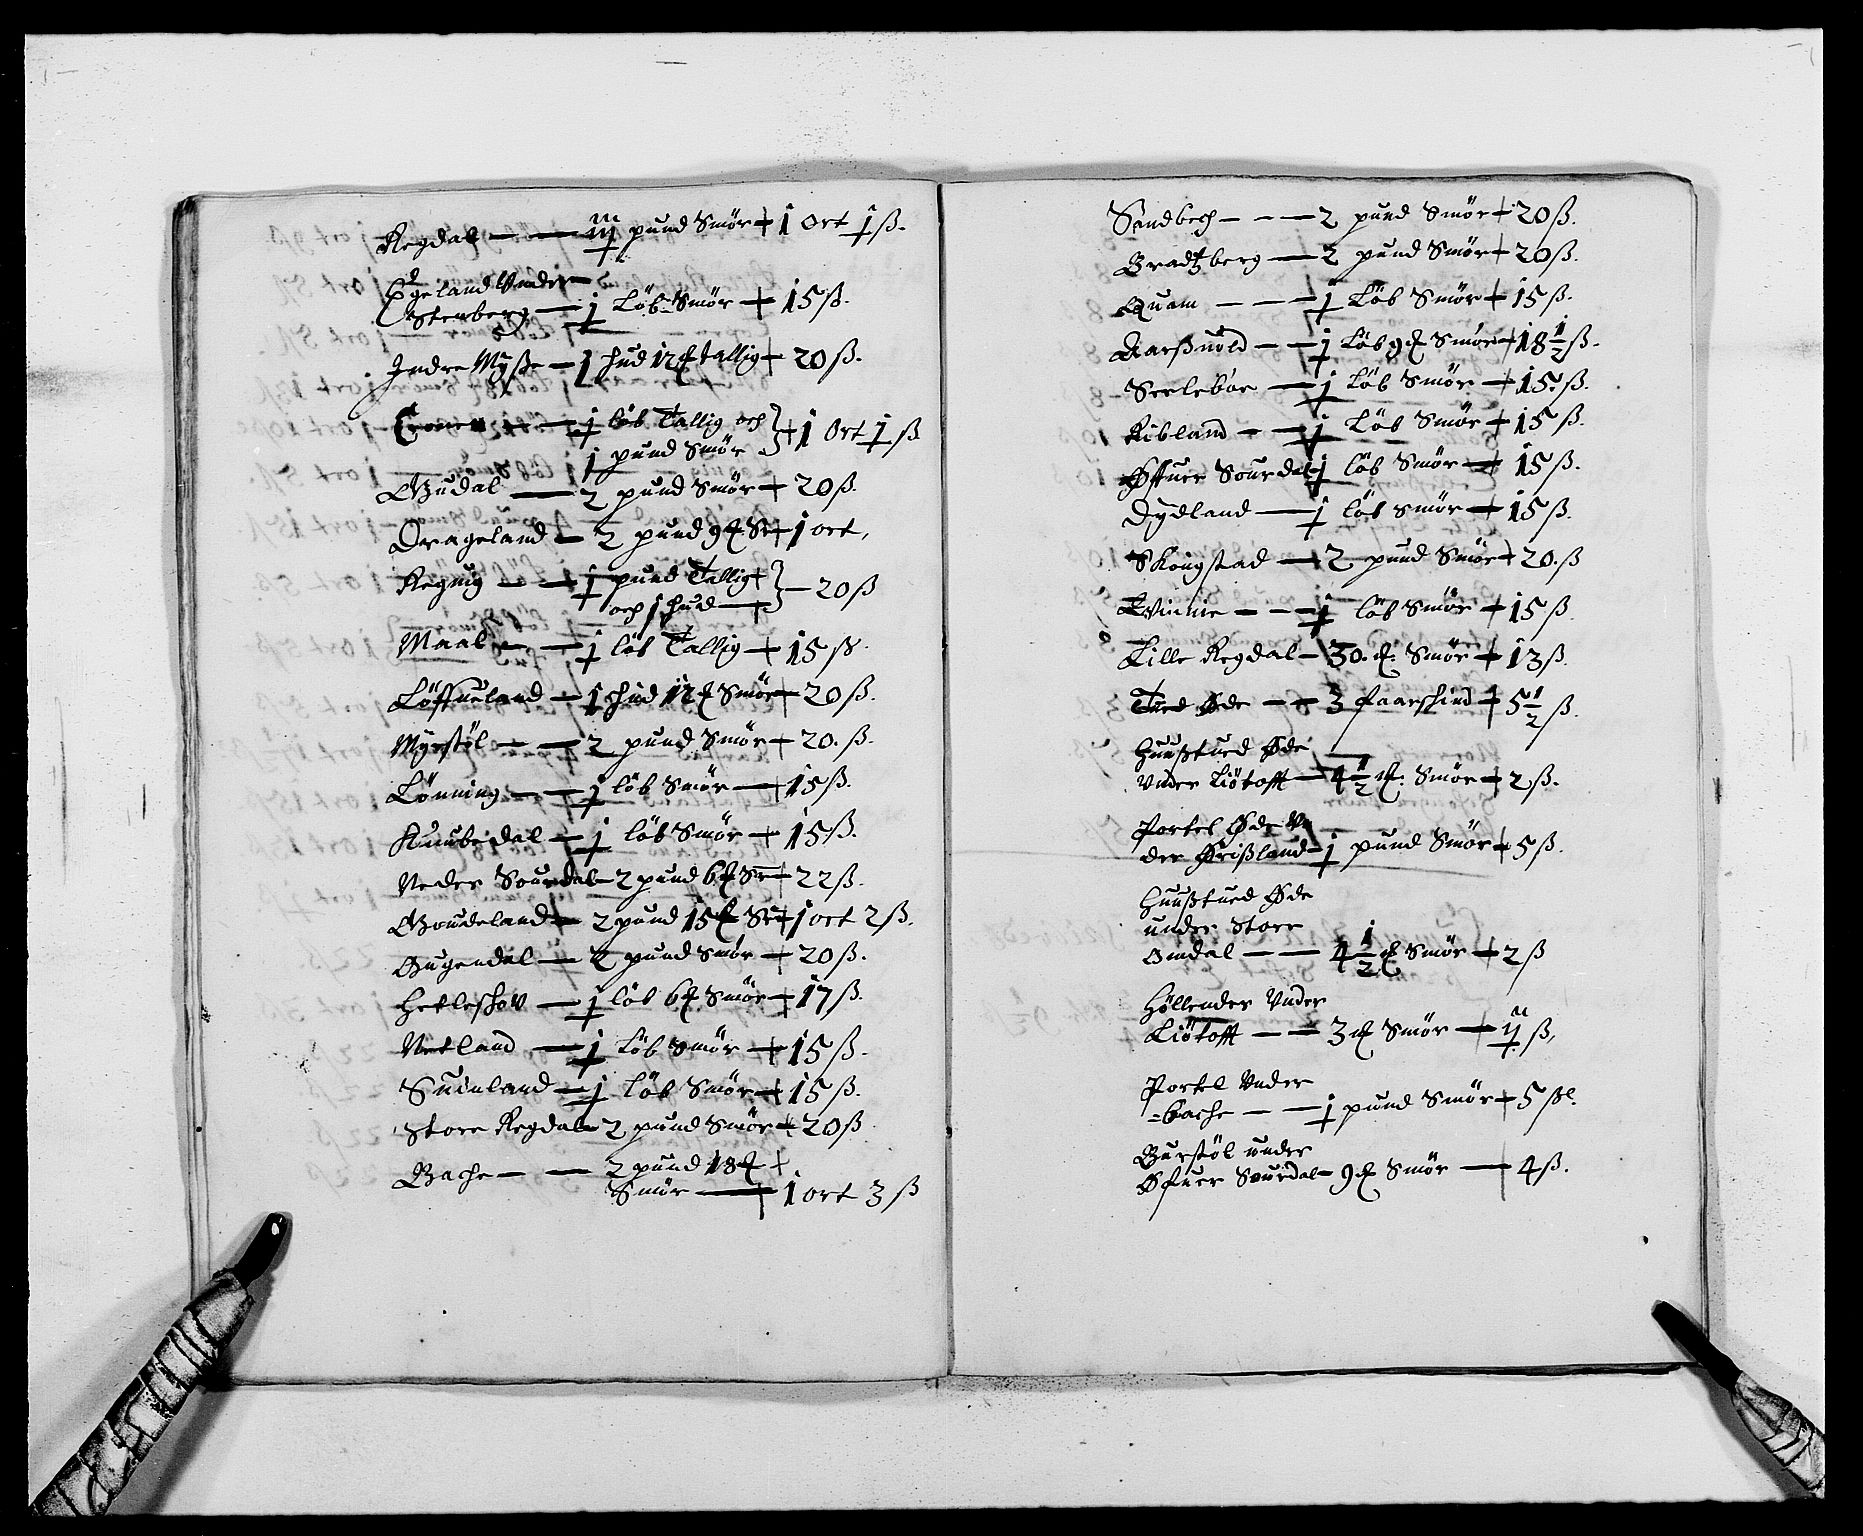 Regdal — — iij pund Smör + 1 ort j ß.
Egeland Vnder
Stenberg — j Löb Smör + 15 ß.
Jndre Mysse — 1 hud 12 ℔ tallig + 20 ß.
— j löb Tallig och
j pund Smör + 1 Ort j ß
Gudal — 2 pund Smör + 20 ß.
Drageland — 2 pund 9 ℔ Sr + 1 ort,
Regnig — — j pund Tallig
och j hud — 20 ß
Maal — — j löb Tallig + 15 ß.
Löffueland — 1 hud 12 ℔ Smör — 20 ß.
Myrstöl — — 2 pund Smör + 20. ß.
Lönning — — j löb Smör — 15 ß.
Knubedal — j löb Smör + 15 ß.
Neder Sourdal — 2 pund 6 ℔ Sr + 22 ß.
Goudeland — 2 pund 15 ℔ Sr + 1 ort 2 ß.
Gugendal — 2 pund Smör + 20 ß.
Hetleshov — j löb 6 ℔ Smör + 17 ß.
Netland — j Löb Smör + 15 ß.
Suinland — j löb Smör + 15 ß.
Store Regdal 2 pund Smör + 20 ß
Bache — — 2 pund 18 ℔ +
Smör — 1 ort 3 ß
Sandbech — — — 2 pund Smör + 20 ß.
Bradtzberg — 2 pund Smör + 20 ß.
Quam — — — j Löb Smör + 15 ß.
Aarßuold — — j Löb 9 ℔ Smör + 18 1/2 ß.
Seeleböe — j Löb Smör + 15 ß.
Ribland — — j Löb Smör + 15 ß.
Øffuer Sourdal j löb Smör — 15 ß.
Dydland — j löb smör + 15 ß.
Skougstad — 2 pund Smör + 20. ß
Tvinnie — — — j löb Smör + 15 ß.
Lille Regdal — 30. ℔. Smör + 13 ß.
Tued Øde — — 3 faarskind + 5 1/2 ß.
Huußtued Øde
Vnder Liötofft — 4 1/2 ℔. Smör + 2 ß.
Portel Øde Vn
der Örißland — j pund Smör + 5 ß.
Huußtued Øde
under Store
Omdal — — 4 1/2 ℔ Smör + 2 ß
Höllender Vnder
Liötofft — — 3 ℔ Smör — ij ß,
Portel Vnder
-bache — — j pund Smör + 5 ßl.
Burstöl under
Øfuer Sourdal — 9 ℔ Smör — 4 ß.